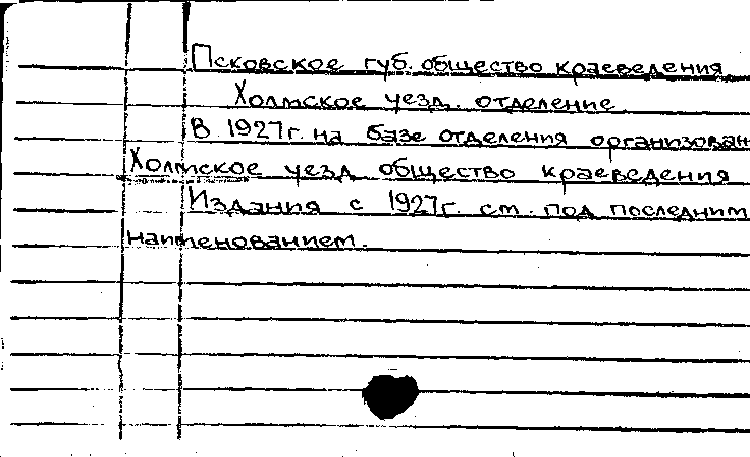 Псковское губ. общество краеведения
Холмское уезд. отделение
В 1927г. на базе отделения организован
Холмское уезд общество краеведения
Издания с 1927г. см. под последним
наименованием.